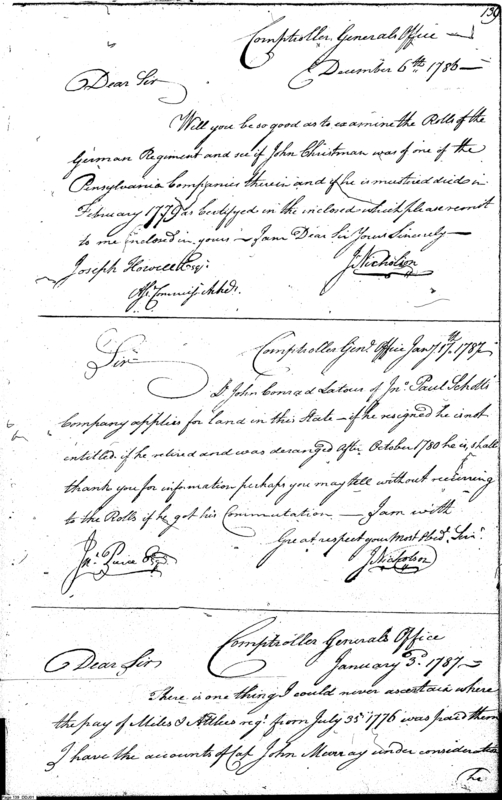 139
Comptroller Generals Office
December 6th 1786
Dear Sir
Will you be so good as to examine the Rolls of the
German Regiment and see if John Christman was of one of the
Pensylvania Companies therein and if he is mustered died in
February 1779 as Certifyed in the inclosed which please remit
to me inclosed in yours I am Dear Sir Yours Sincerely
Joseph Howell Esqr. Jn Nicholson
Asst. Commissr. Accts.
Sir Comptroller Genl. Office Jany 17th 1787
Dr John Conrad Latour of Jno. Paul Schotts
Company applies for land in this State – if he resigned he is not
intitled if he retired and was deranged after October 1780 he is, shall
thank you for information perhaps you may tell without recurring
to the Rolls if he got his Commutation — I am with
Great respect your Most Obed. Serv.
Jno. Pierce Esqr Jn Nicholson
Comptroller Generals Office
January 3d. 1787
Dear Sir
There is one thing I could never ascertain where
the pay of Miles & Atlees regt. from July 35 1776 was paid them
I have the accounts of Cap John Murray under consideration
he
Page 139 DDJ01